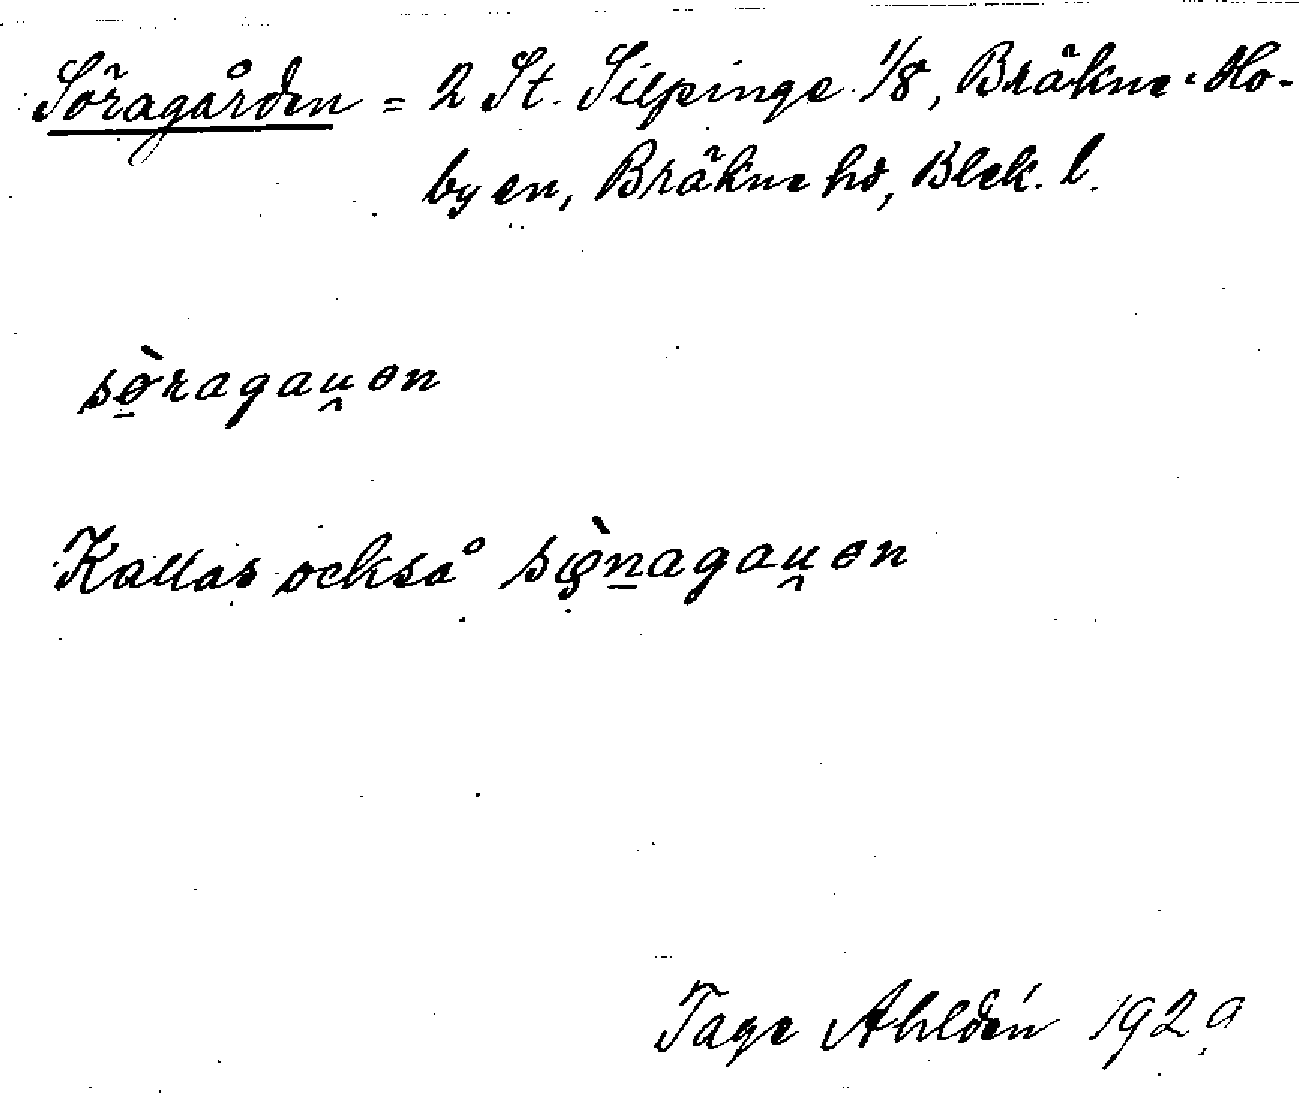 Söragården = 2 St. Silpinge 1/8, Bräkne-Ho-
by sn, Bräkne hd, Blek. l.
sø̱̀ragau̯ən
Kallas också sø̱̀n̠agau̯ən
Tage Ahldén 1929